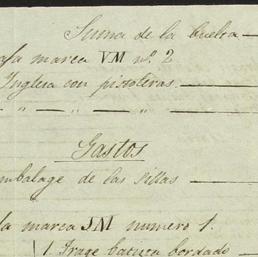 Suma de la buelta
aja marca VM nº. 2
Inglesa con pistoleras
" — " — "
Gastos
mbalage de las sillas
la marca JM numero 1.
1. Trage batuca bordado